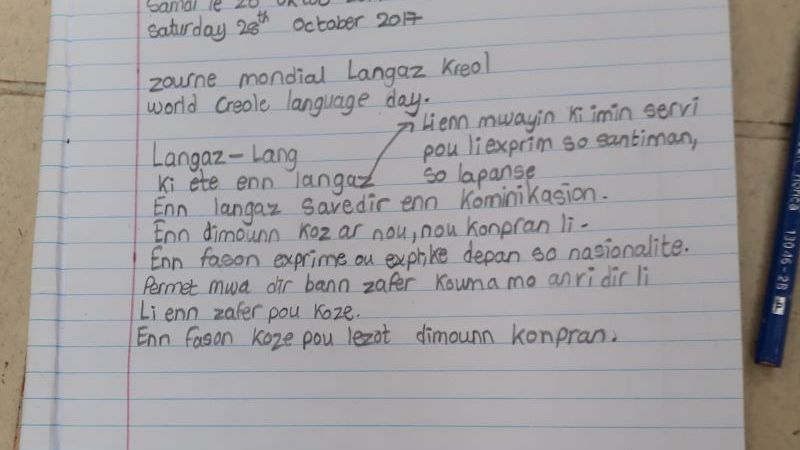 Samdi le 28
Saturday 28th October 2017
zourne mondial Langaz Kreol
world Creole language day.
Li enn mwayin ki imin servi
pou li exprim so santiman,
so lapanse
Langaz - Lang
Ki ete enn langaz
Enn langaz savedir enn kominikasion.
Enn dimounn koz ar nou, nou konpran li.
Enn fason exprime ou explike depan so nasionalite.
Permet mwa dir bann zafer kouma mo anvi dir li
Li enn zafer pou koze.
Enn fason koze pou lezot dimounn konpran.
13046-2B